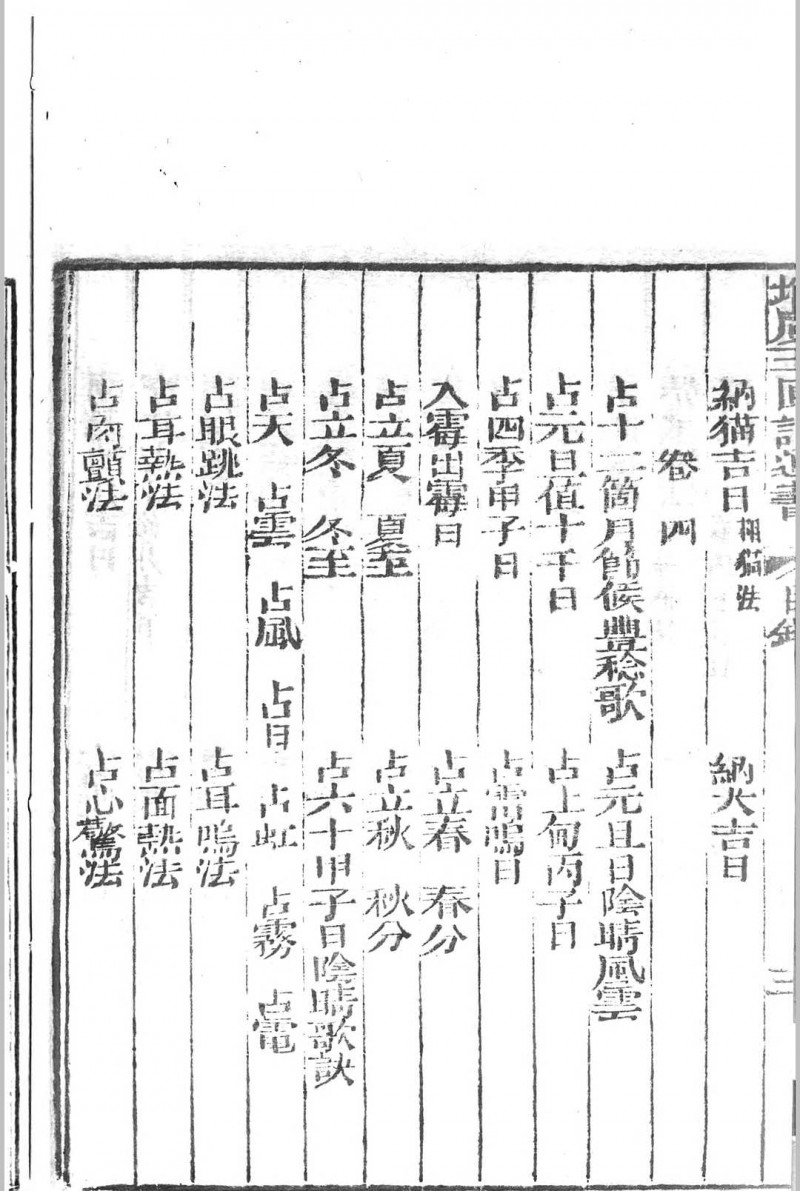 納猫吉日 相猫法 納犬吉日
卷四
占十二箇月節候豐稔歌 占元旦日陰晴風雲
占元旦值十干日 占上旬丙子日
占四季甲子日 占雷鳴日
入霉出霉日 占立春 春分
占立夏 夏至 占立秋 秋分
占立冬 冬至 占六十甲子日陰晴歌訣
占天 占雲 占風 占月 占虹 占霧 占電
占眼跳法 占耳鳴法
占耳熱法 占面熱法
占肉顫法 占心驚法